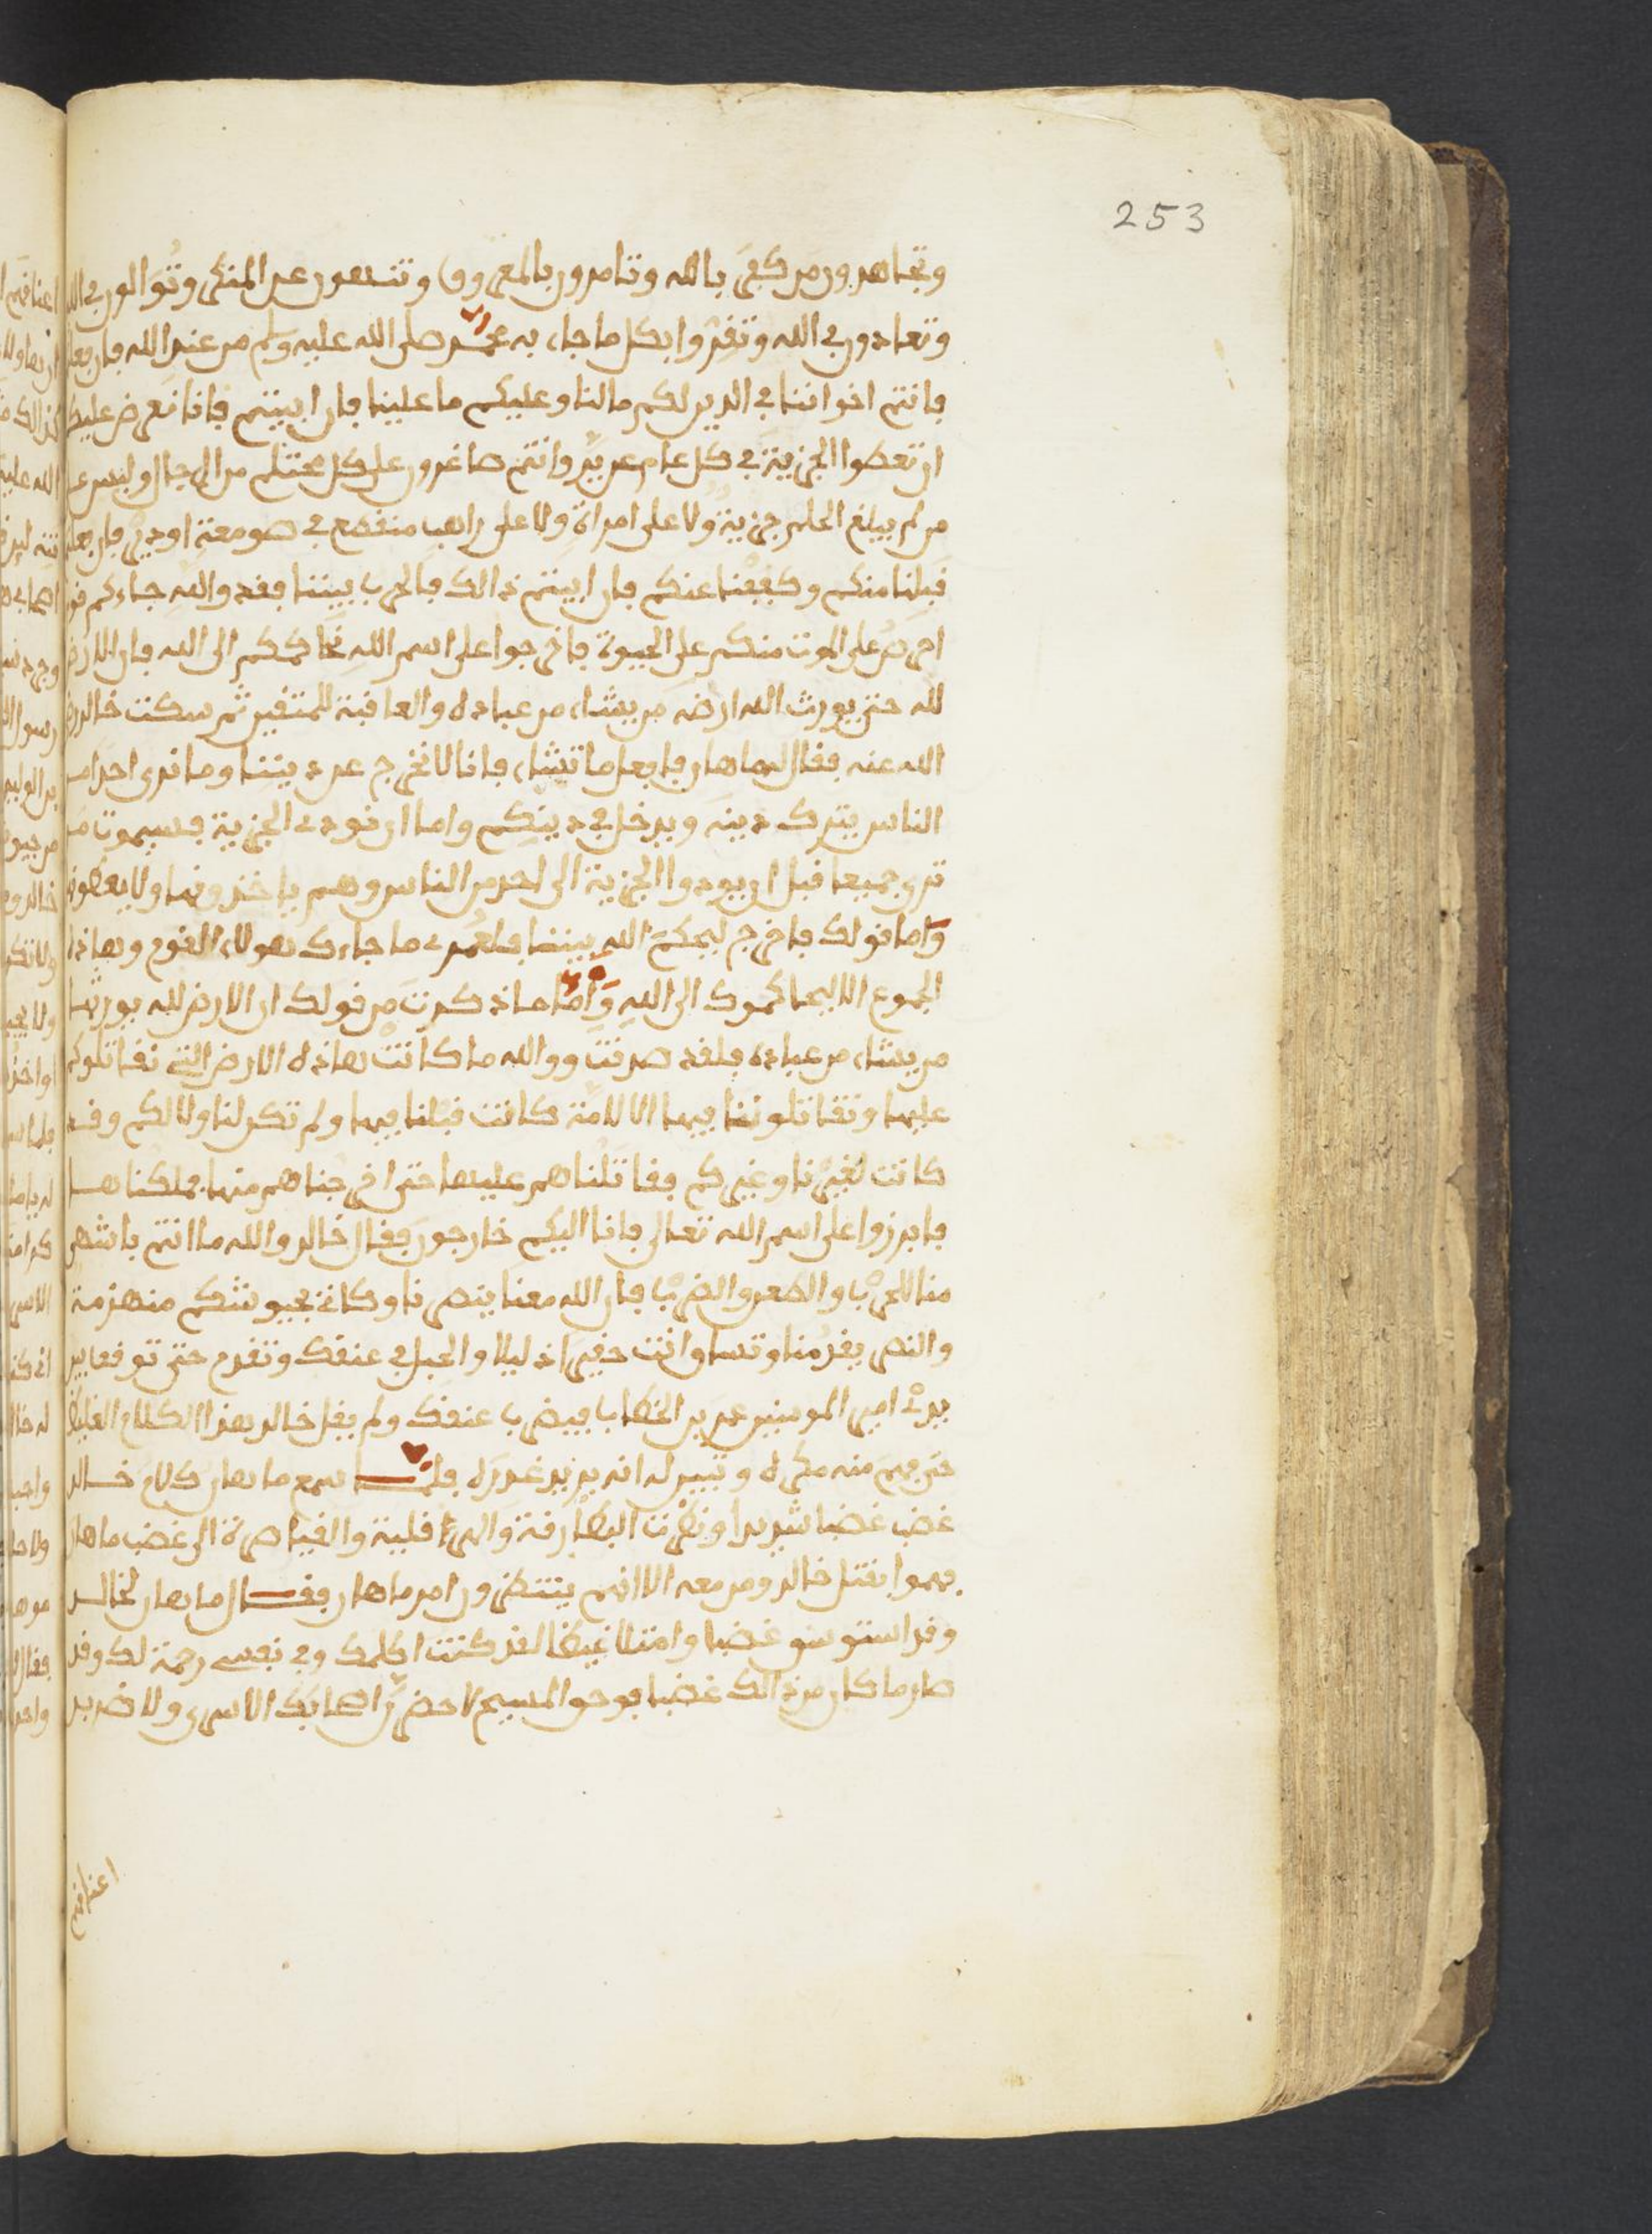 253
وتجاهدون من كفر بالله وتامرون بالمعروف وتنهون عن المنكر وتوالون في الله
وتعادون في الله وتقروا بكل ما جاء به محمد صلى الله عليه وسلم من عند الله فان فعلتم
فانتم اخواننا في الدين لكم ما لنا وعليكم ما علينا فان ابيتم فانا نعرض عليكم
ان تعطوا الجزية في كل عام عن يد وانتم صاغرون على كل محتلم من الرجال وليس على
من لم يبلغ الحلم جزية ولا على امراة ولا على راهب منقطع في صومعة او دير فان فعلتم
قبلنا منكم وكففنا عنكم فان ابيتم ذالك فالحرب بيننا فقد والله جاءكم قوم
احرص على الموت منكم على الحيوة فاخرجوا على اسم الله نحاكمكم الى الله فان الارض
لله حتى يورث الله ارضه من يشاء من عباده والعاقبة للمتقين ثم سكت خالد رضي
الله عنه فقال لهما هان فافعل ما تشاء فانا لا نخرج عن ديننا وما نرى احدا من
الناس يترك دينه ويدخل في دينكم واما ان نودي الجزية فسيموت من
ترى جميعا قبل ان يودوا الجزية الى احد من الناس وهم ياخذونها ولا يعطونها
واما قولك فاخرج ليحكم الله بيننا فلعمري ما جاءك هولاء القوم وهاذه
الجموع الا ليحاكموك الى الله واما ما ذكرت من قولك ان الارض لله يورثها
من يشاء من عباده فلقد صدقت ووالله ما كانت هاذه الارض التي نقاتلوكم
عليها وتقاتلوننا فيها الا لامة كانت قبلنا فيها ولم تكن لنا ولا لكم وقد
كانت لغيرنا وغيركم فقاتلناهم عليها حتى اخرجناهم منها فملكناها
فابرزوا على اسم الله تعالى فانا اليكم خارجون فقال خالد والله ما انتم باشهى
منا للحرب والطعن والضرب فان الله معنا ينصرنا وكاني بجيوشكم منهزمة
والنصر يقدمنا وتساق انت حقيرا ذليلا والحبل في عنقك وتقدم حتى توقف بين
يدي امير المومنين عمر بن الخطاب فيضرب عنقك ولم يقل خالد هذا الكلام الغليظ
حتى فهم منه مكره وتبين له انه يريد غدره فلما سمع ماهان كلام خالد
غضب غضبا شديدا ونظرت البطارقة والهرقلية والقياصرة الى غضب ماهان
فهموا بقتل خالد ومن معه الا انهم ينتظرون امر ماهان فقال ماهان لخالد
وقد استوسن غضبا وامتلا غيظا لقد كنت اكلمك وفي نفسي رحمة لك وقد
صار ما كان من ذالك غضبا فوحق المسيح لاحضرن اصحابك الاسرى ولا ضربن
اعناقهم